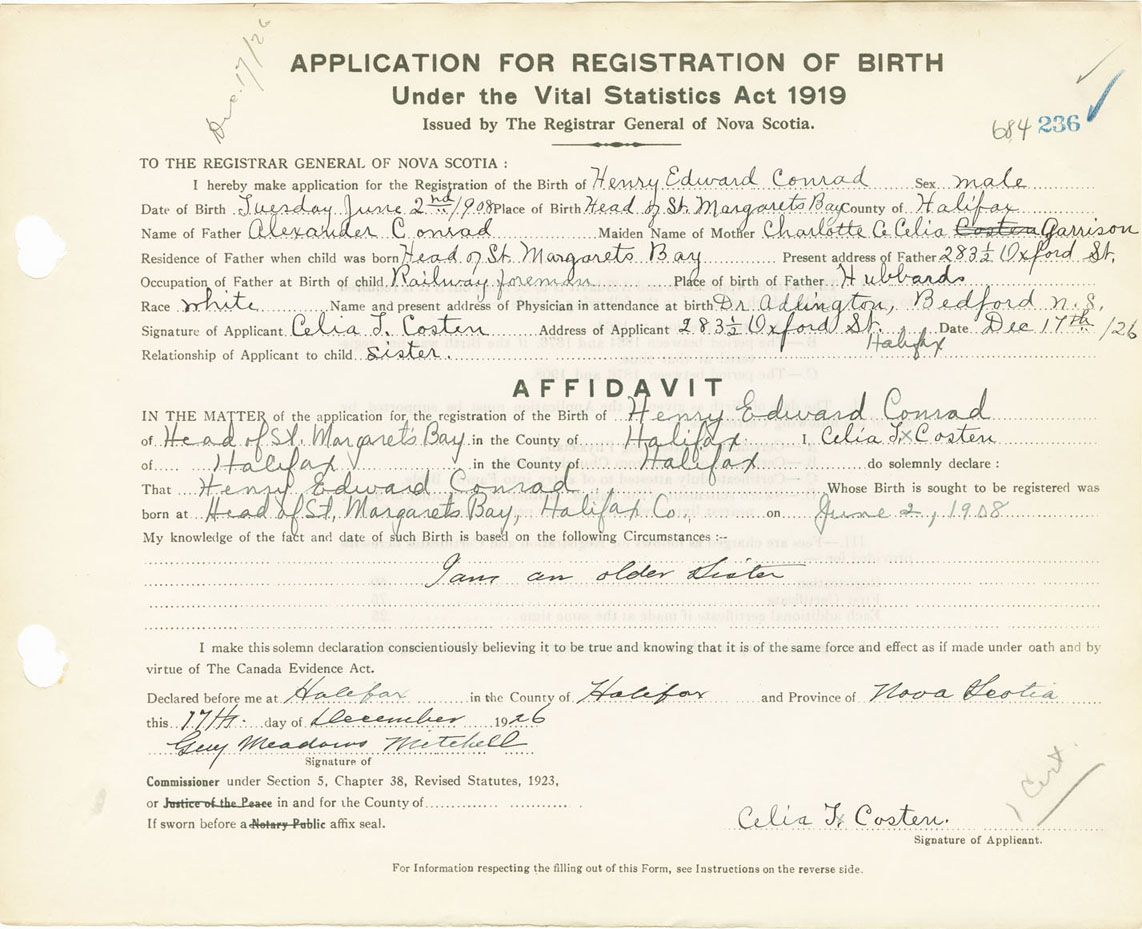 Dec. 17/26
APPLICATION FOR REGISTRATION OF BIRTH
Under the Vital Statistics Act 1919
Issued by The Registrar General of Nova Scotia.
684 236
TO THE REGISTRAR GENERAL OF NOVA SCOTIA :
I hereby make application for the Registration of the Birth of Henry Edward Conrad Sex male
Date of Birth Tuesday June 2nd 1908 Place of Birth Head of St. Margarets Bay County of Halifax
Name of Father Alexander Conrad Maiden Name of Mother Charlotte Ce Celia Costen Garrison
Residence of Father when child was born Head of St. Margarets Bay Present address of Father 283½ Oxford St.
Occupation of Father at Birth of child Railway foreman Place of birth of Father Hubbards
Race white Name and present address of Physician in attendance at birth Dr Adlington, Bedford N.S.
Signature of Applicant Celia T. Costen Address of Applicant 283½ Oxford St. Halifax Date Dec 17th /26
Relationship of Applicant to child sister.
AFFIDAVIT
IN THE MATTER of the application for the registration of the Birth of Henry Edward Conrad
of Head of St. Margaret's Bay in the County of Halifax I, Celia T Costen
of Halifax in the County of Halifax do solemnly declare :
That Henry Edward Conrad Whose Birth is sought to be registered was
born at Head of St. Margarets Bay, Halifax Co., on June 2, 1908
My knowledge of the fact and date of such Birth is based on the following Circumstances :--
I am an older Sister
I make this solemn declaration conscientiously believing it to be true and knowing that it is of the same force and effect as if made under oath and by
virtue of The Canada Evidence Act.
Declared before me at Halifax in the County of Halifax and Province of Nova Scotia
this 17th. day of December 1926
Guy Meadows Mitchell
Signature of
Commissioner under Section 5, Chapter 38, Revised Statutes, 1923,
or Justice of the Peace in and for the County of
If sworn before a Notary Public affix seal.
1 Cert.
Celia T Costen.
Signature of Applicant.
For Information respecting the filling out of this Form, see Instructions on the reverse side.